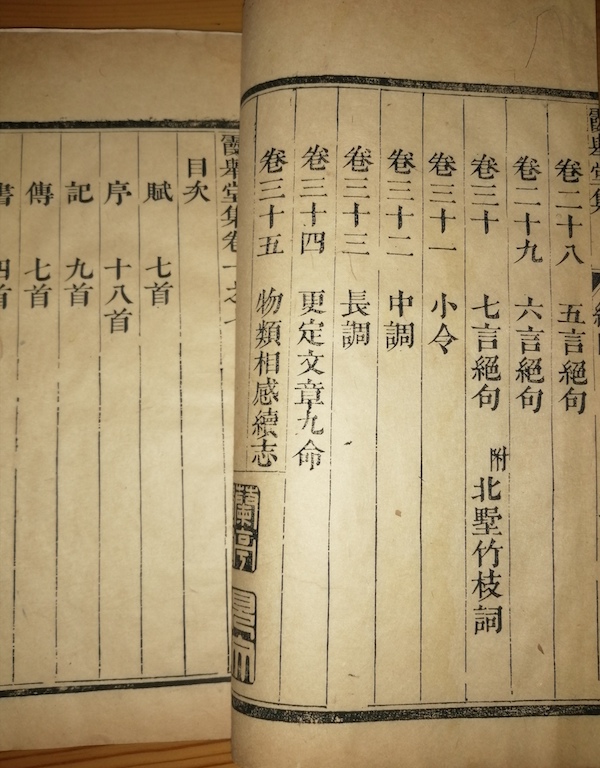 霞舉堂集
卷二十八 五言絕句
卷二十九 六言絕句
卷三十 七言絕句 附北墅竹枝詞
卷三十一 小令
卷三十二 中調
卷三十三 長調
卷三十四 更定文章九命
卷三十五 物類相感續志
蘭亭
霞舉堂集卷一之七
目次
賦 七首
序 十八首
記 九首
傳 七首
書 四首